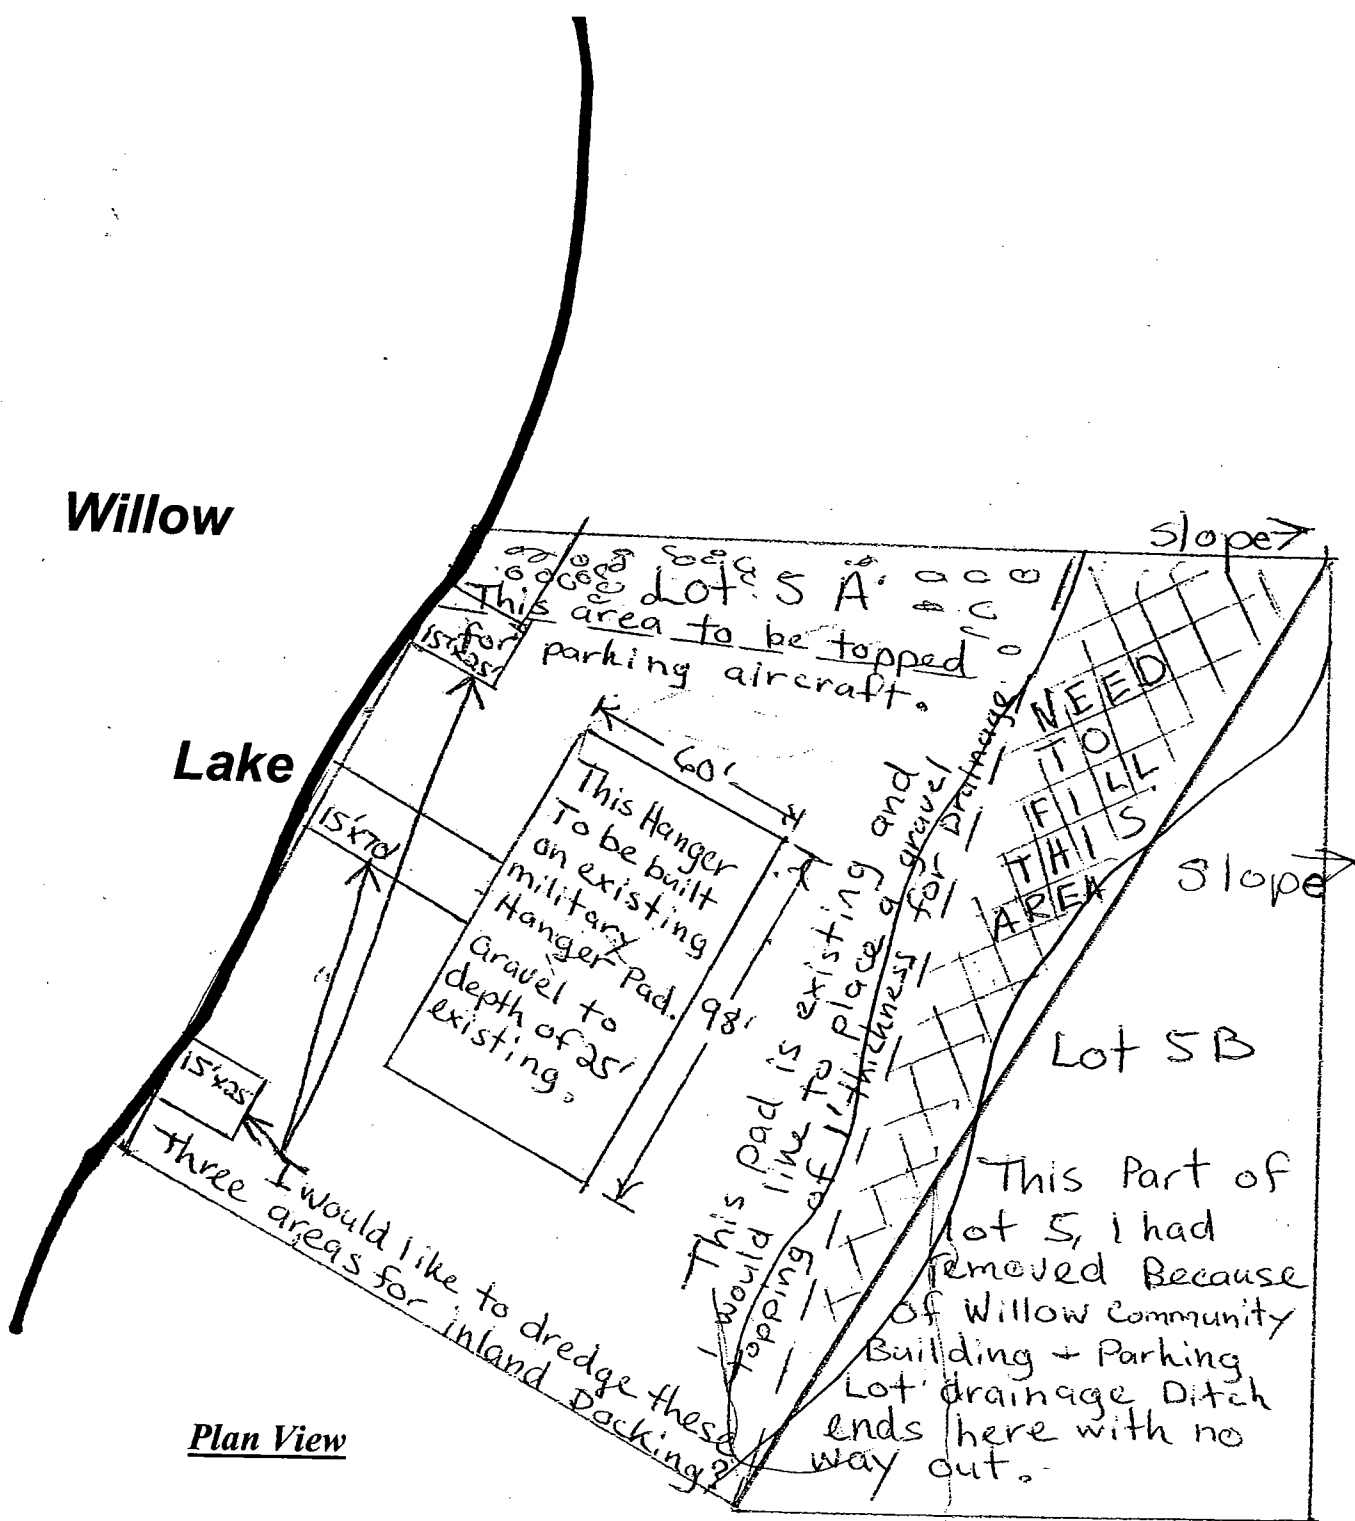 Willow
Lake
slope
Lot 5 A
This area to be topped
for parking aircraft.
15'x25'
60'
This Hanger
To be built
on existing
military
Hanger Pad.
Gravel to
depth of 25'
existing.
98'
15'x70'
15'x25'
I would like to dredge these
three areas for inland Docking?
This pad is existing and
I would like to place a gravel
topping of 1' thickness for Drainage
NEED
TO
FILL
THIS
AREA
slope
Lot 5B
This Part of
lot 5, I had
removed Because
of Willow Community
Building + Parking
Lot drainage Ditch
ends here with no
way out.
Plan View